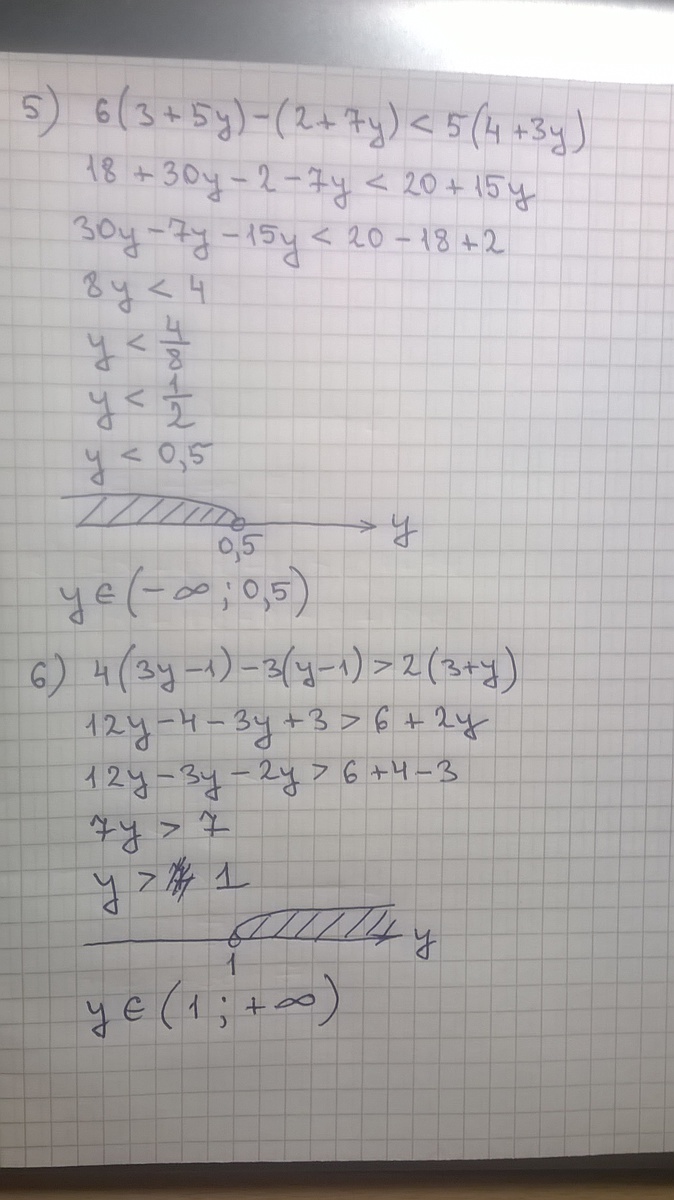 5) 6(3+5y)-(2+7y)<5(4+3y)
18+30y-2-7y<20+15y
30y-7y-15y<20-18+2
8y<4
y<4/8
y<1/2
y<0,5
y
0,5
y∈(-∞;0,5)
6) 4(3y-1)-3(y-1)>2(3+y)
12y-4-3y+3>6+2y
12y-3y-2y>6+4-3
7y>7
y>1
y
1
y∈(1;+∞)